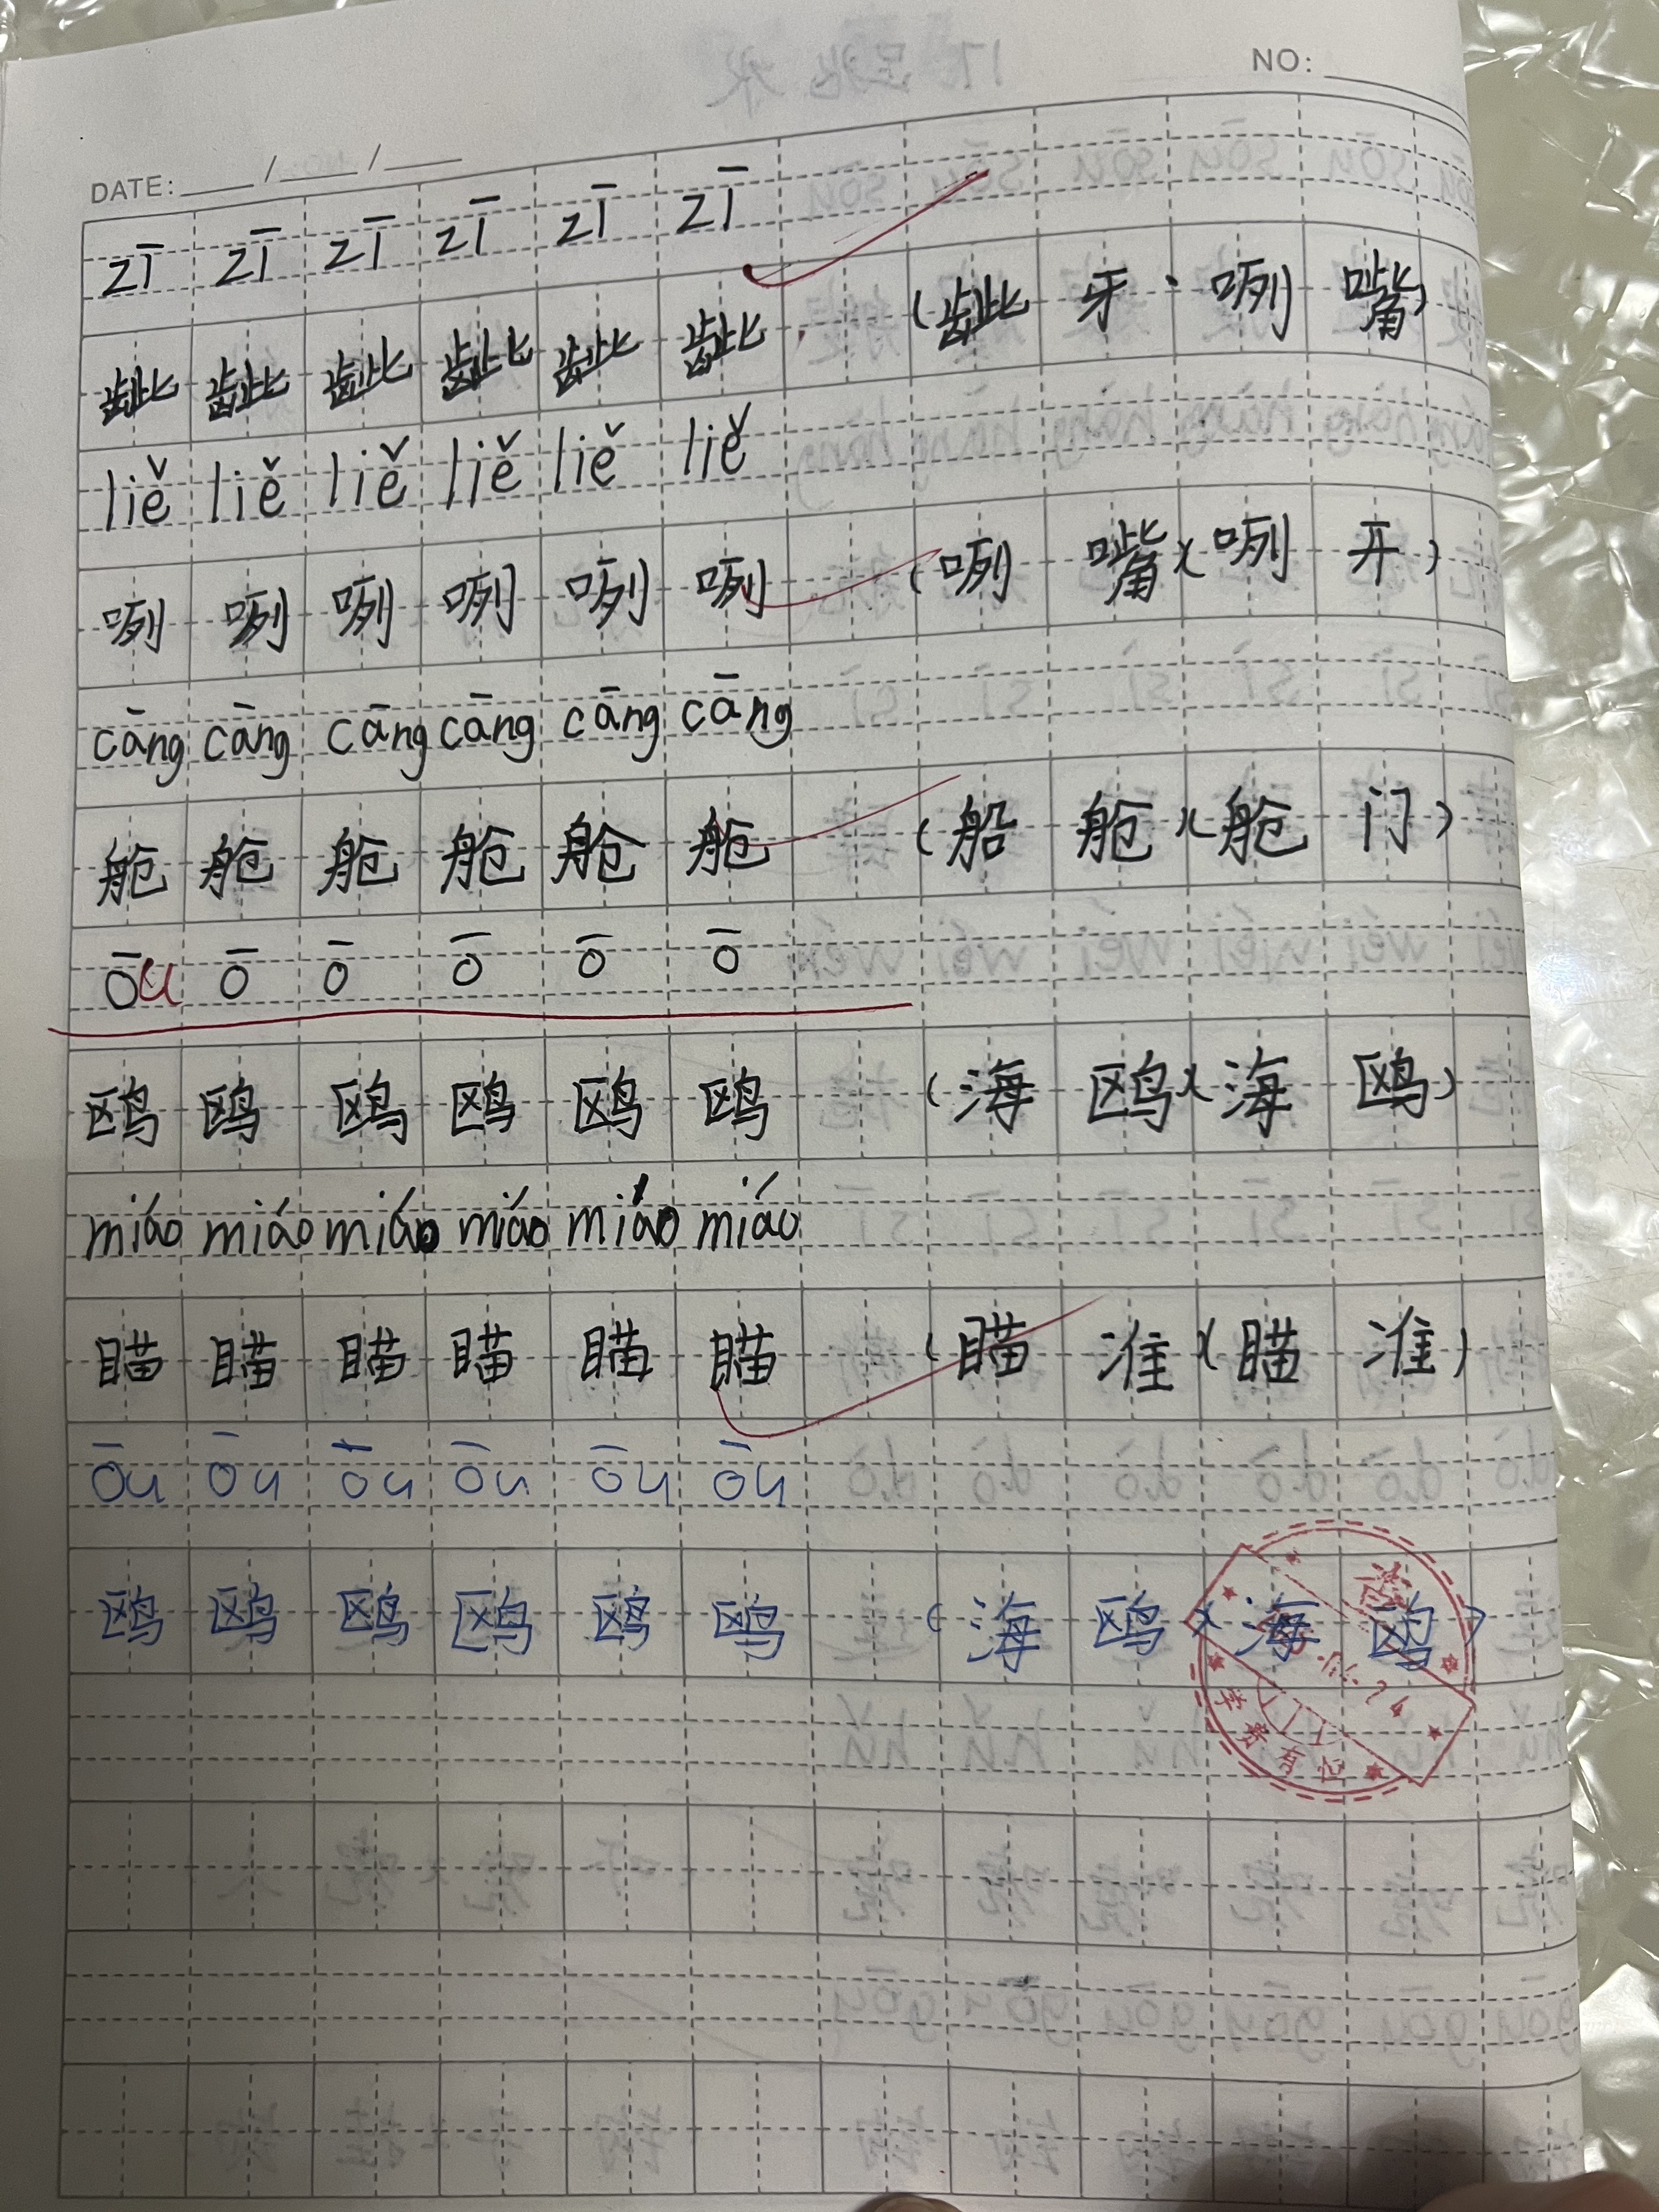 NO:
DATE: / /
zī zī zī zī zī zī
龇 龇 龇 龇 龇 龇 (龇牙·咧嘴)
liě liě liě liě liě liě
咧 咧 咧 咧 咧 咧 (咧嘴)(咧开)
cāng cāng cāng cāng cāng cāng
舱 舱 舱 舱 舱 舱 (船舱)(舱门)
ōu ō ō ō ō ō
鸥 鸥 鸥 鸥 鸥 鸥 (海鸥)(海鸥)
miáo miáo miáo miáo miáo miáo
瞄 瞄 瞄 瞄 瞄 瞄 (瞄准)(瞄准)
ōu ōu ōu ōu ōu ōu
鸥 鸥 鸥 鸥 鸥 鸥 (海鸥)(海鸥)
学贵有恒